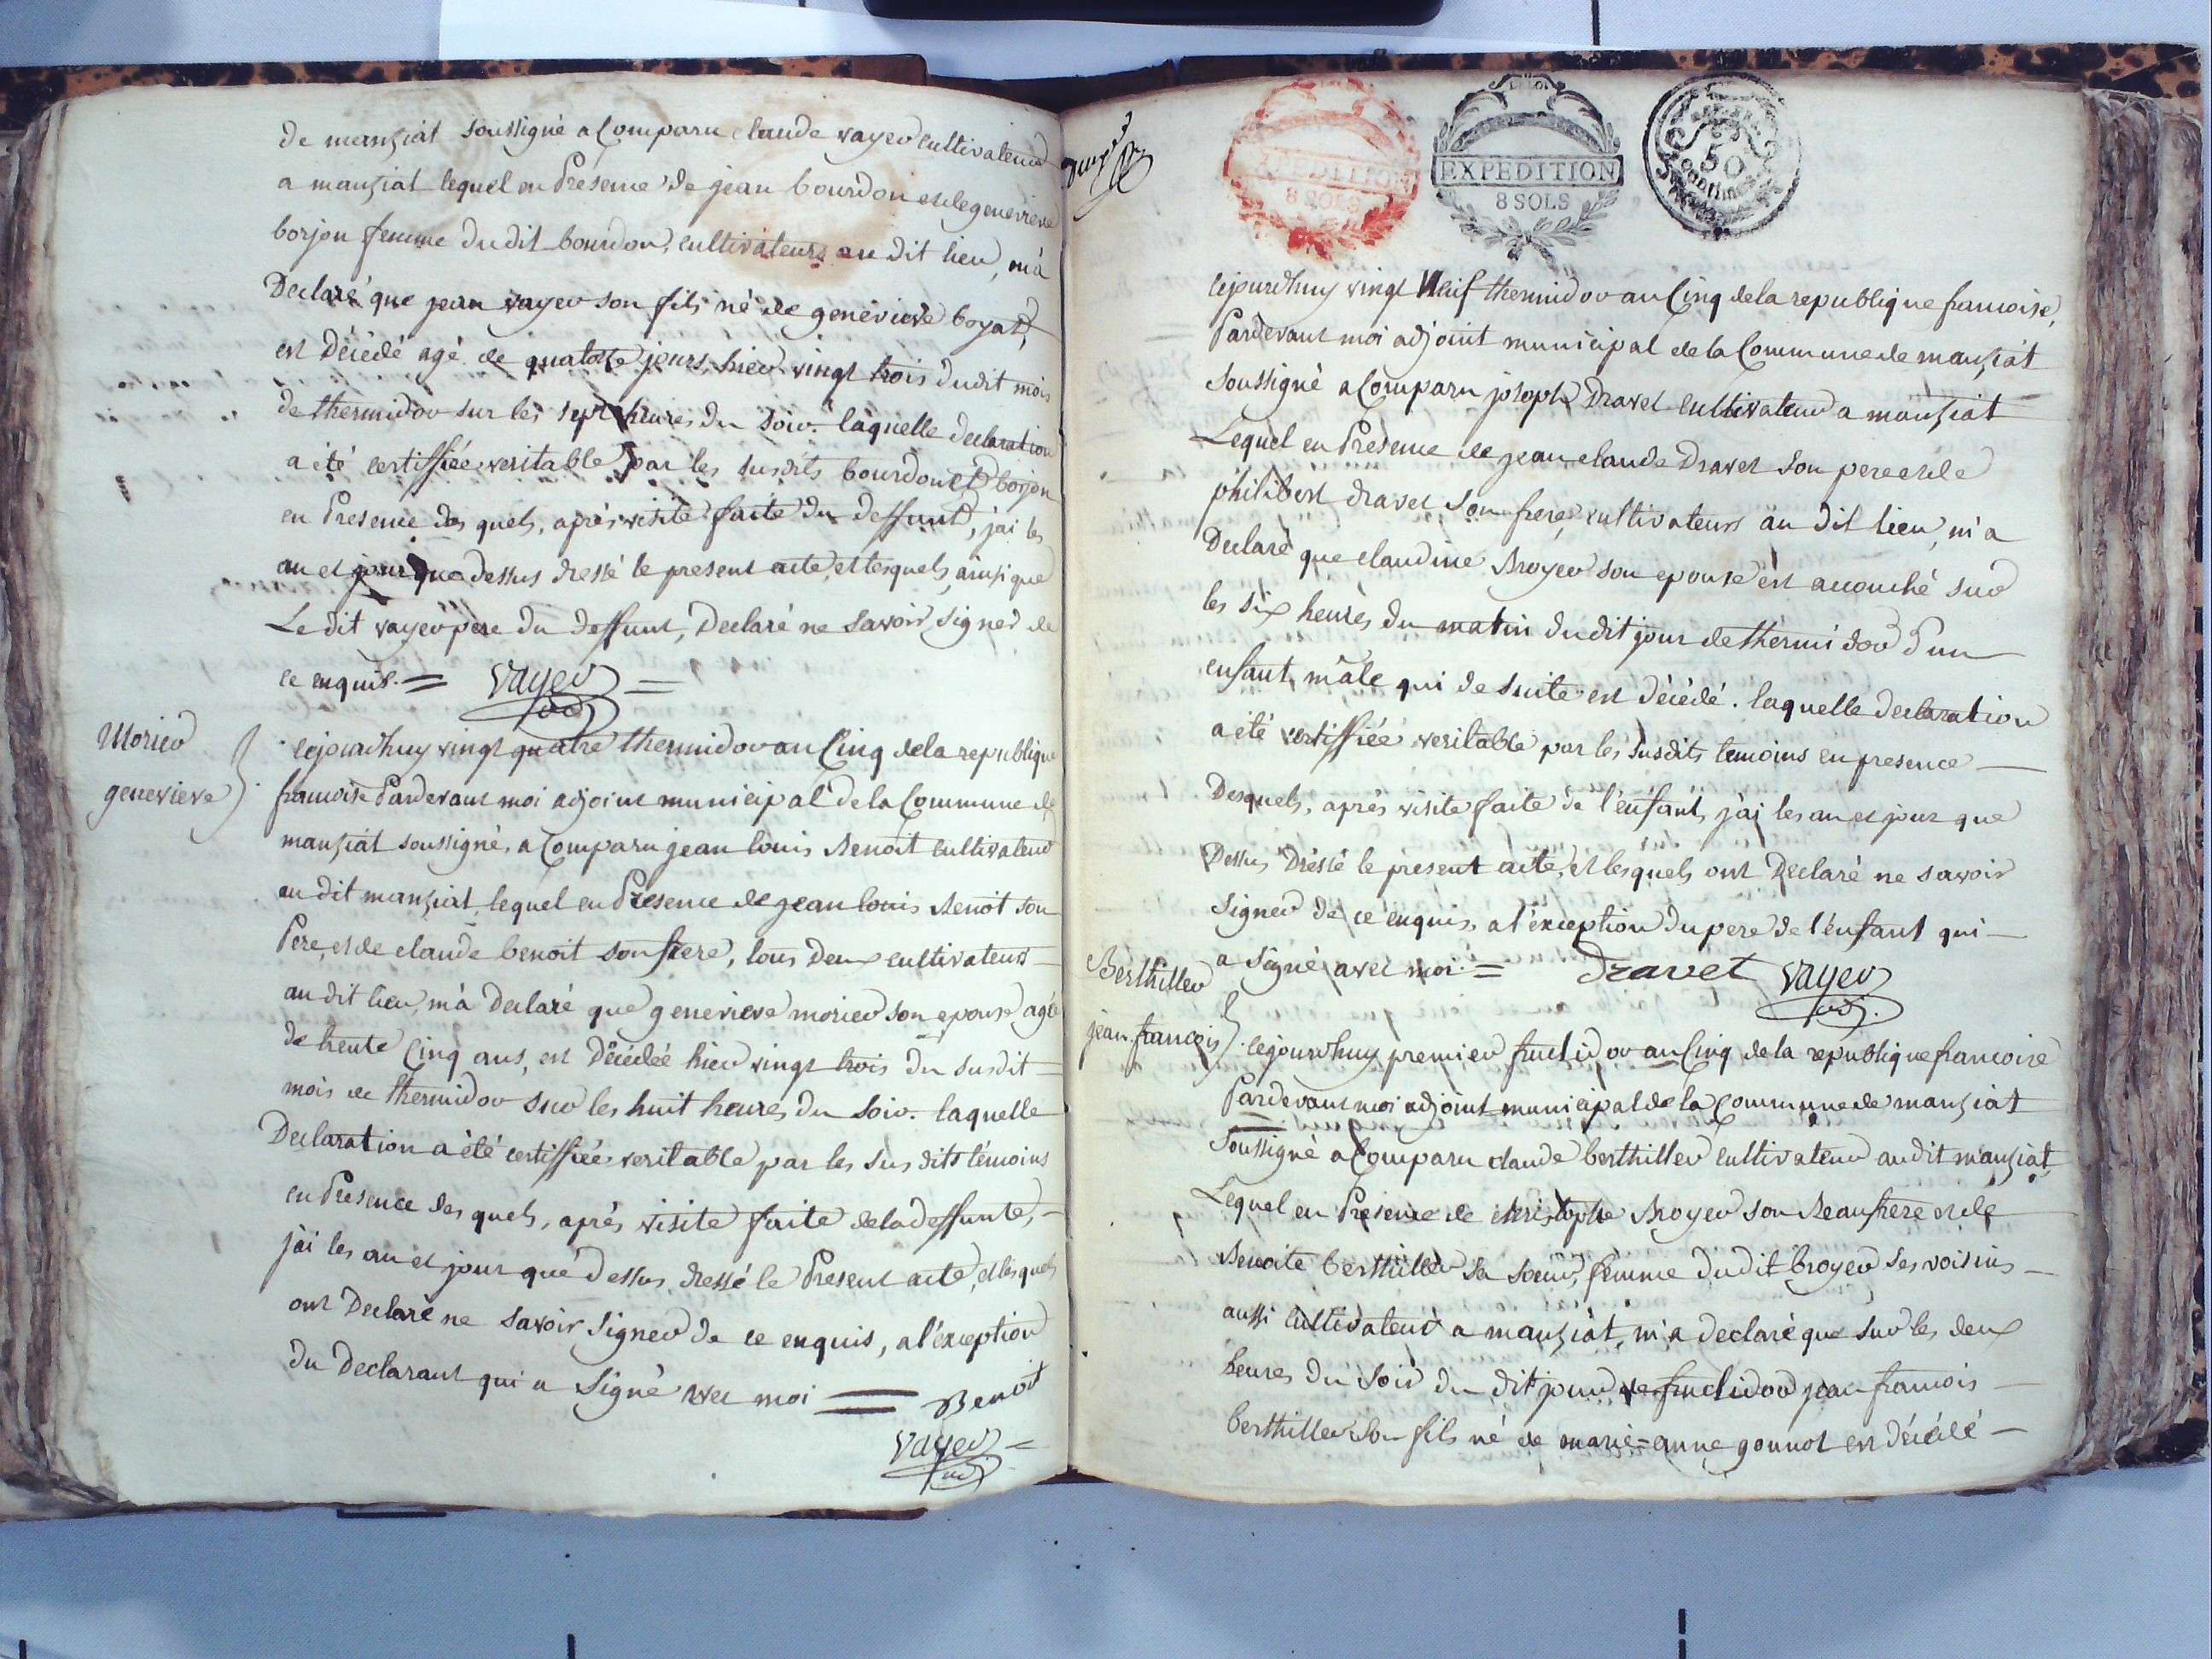 de manziat soussigné a Comparu claude vayer cultivateur
a manziat lequel en Présence de jean bourdon et de genevieve
borjon femme du dit bourdon, cultivateurs au dit lieu, m'a
Declaré que jean vayer son fils né de genevieve boyat,
est décédé agé de quatorze jours, hier vingt trois dudit mois
de thermidor sur les sept heures du soir. laquelle declaration
a été certiffiée veritable par les susdits bourdon et borjon
en Presence des quels, après visite faite du deffunt, j'ai les
an et jour que dessus dressé le present acte, et lesquels, ainsi que
Le dit vayer pere du deffunt, Declaré ne savoir signer de
ce enquis. = vayer =
adj
Morier
genevieve
cejourdhuy vingt quatre thermidor an Cinq de la republique
francoise Pardevant moi adjoint municipal de la Commune de
manziat soussigné, a Comparu jean louis Benoit cultivateur
au dit manziat, lequel en Présence de jean louis Benoit son
Pere, et de claude benoit son frere, tous deux cultivateurs
au dit lieu, m'a Declaré que genevieve morier son epouse agée
de trente Cinq ans, est Décédée hier vingt trois du susdit
mois de thermidor sur les huit heures du soir. laquelle
Declaration a été certiffiée veritable par les sus dits témoins
en Présence des quels, après visite faite de la deffunte,
j'ai les an et jour que dessus, dressé le Present acte, et lesquels
ont Declaré ne savoir signer de ce enquis, a l'exception
du Declarant qui a signé avec moi = Benoit
vayer =
adj
3
EXPEDITION
8 SOLS
EXPEDITION
8 SOLS
50
Centimes
cejourdhuy vingt Neuf thermidor an Cinq de la republique francoise,
Pardevant moi adjoint municipal de la Commune de manziat
soussigné a Comparu joseph Dravet cultivateur a manziat
Lequel en Présence de jean claude Dravet son pere et de
philibert dravet son frere, cultivateurs au dit lieu, m'a
Declaré que claudine Broyer son epouse est accouché sur
les six heures du matin du dit jour de thermidor d'un
enfant mâle qui de suite est décédé. laquelle declaration
a été certiffiée veritable par les susdits temoins en presence
Desquels, après visite faite de l'enfant, j'ai les an et jour que
Dessus Dressé le present acte, et lesquels ont Declaré ne savoir
signer de ce enquis, a l'exception du pere de l'enfant qui
a signé avec moi. = Dravet vayer
adj.
Berthiller
jean francois
cejourdhuy premier fructidor an Cinq de la republique francoise
Pardevant moi adjoint municipal de la Commune de manziat
soussigné a Comparu claude berthiller cultivateur au dit manziat,
Lequel en Présence de christophe Broyer son Beaufrere et de
Benoite berthiller sa soeur, femme du dit broyer ses voisins
aussi cultivateur a manziat, m'a declaré que sur les deux
heures du soir du dit jour de fructidor jean francois
berthiller son fils né de marie=anne gonnot est décédé